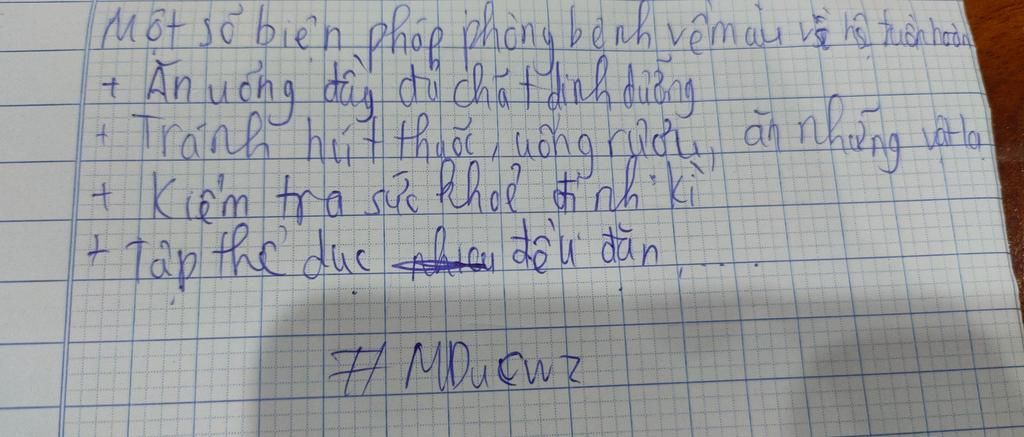 Một số biện pháp phòng bệnh về máu về hệ tuần hoàn
+ Ăn uống đầy đủ chất dinh dưỡng
+ Tránh hút thuốc, uống rượu, ăn những vật lạ
+ Kiểm tra sức khoẻ định kì
+ Tập thể dục đều đặn .....
# MDucwz